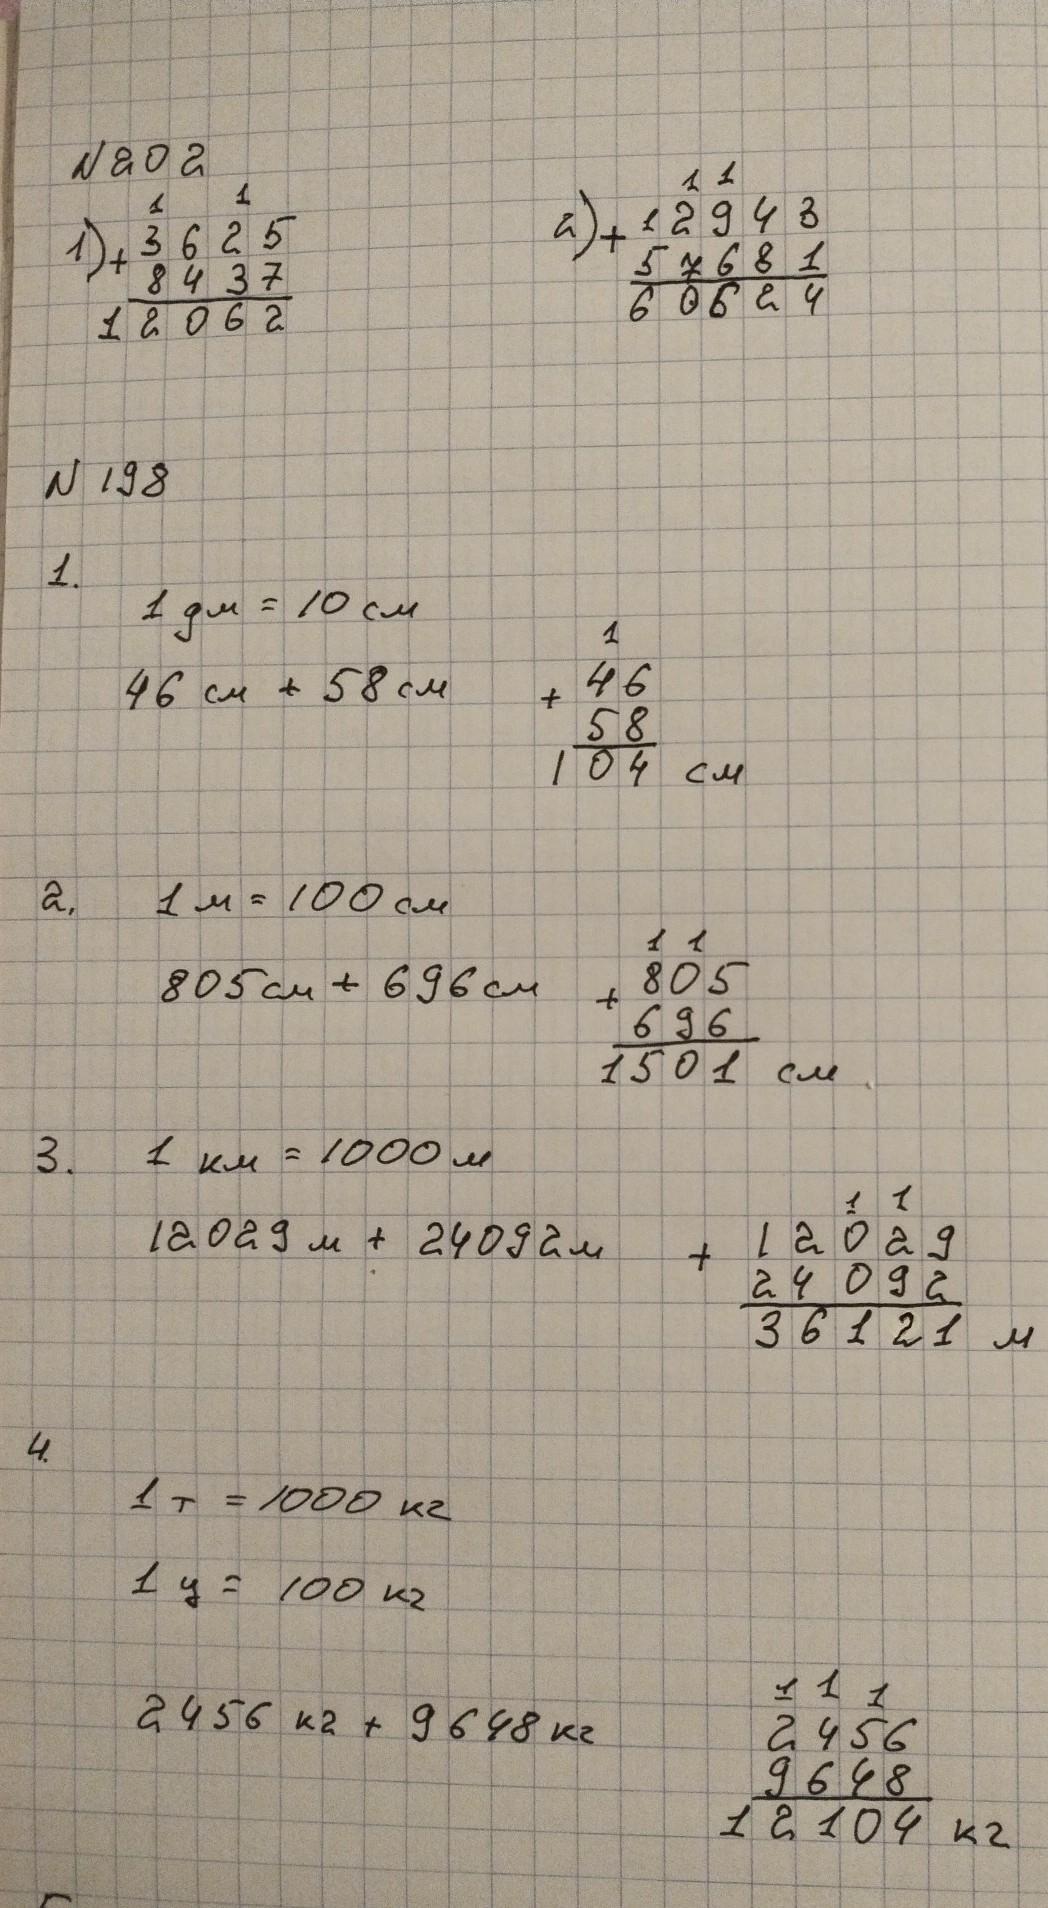 N 202
1 1
1) + 3625
8437
12062
1 1
2) + 12943
57681
60624
N 198
1.
1 дм = 10 см
46 см + 58 см
1
+ 46
58
104 см
2. 1 м = 100 см
805 см + 696 см
1 1
+ 805
696
1501 см
3. 1 км = 1000 м
12029 м + 24092 м
1 1
+ 12029
24092
36121 м
4.
1 т = 1000 кг
1 ц = 100 кг
2456 кг + 9648 кг
1 1 1
2456
9648
12104 кг